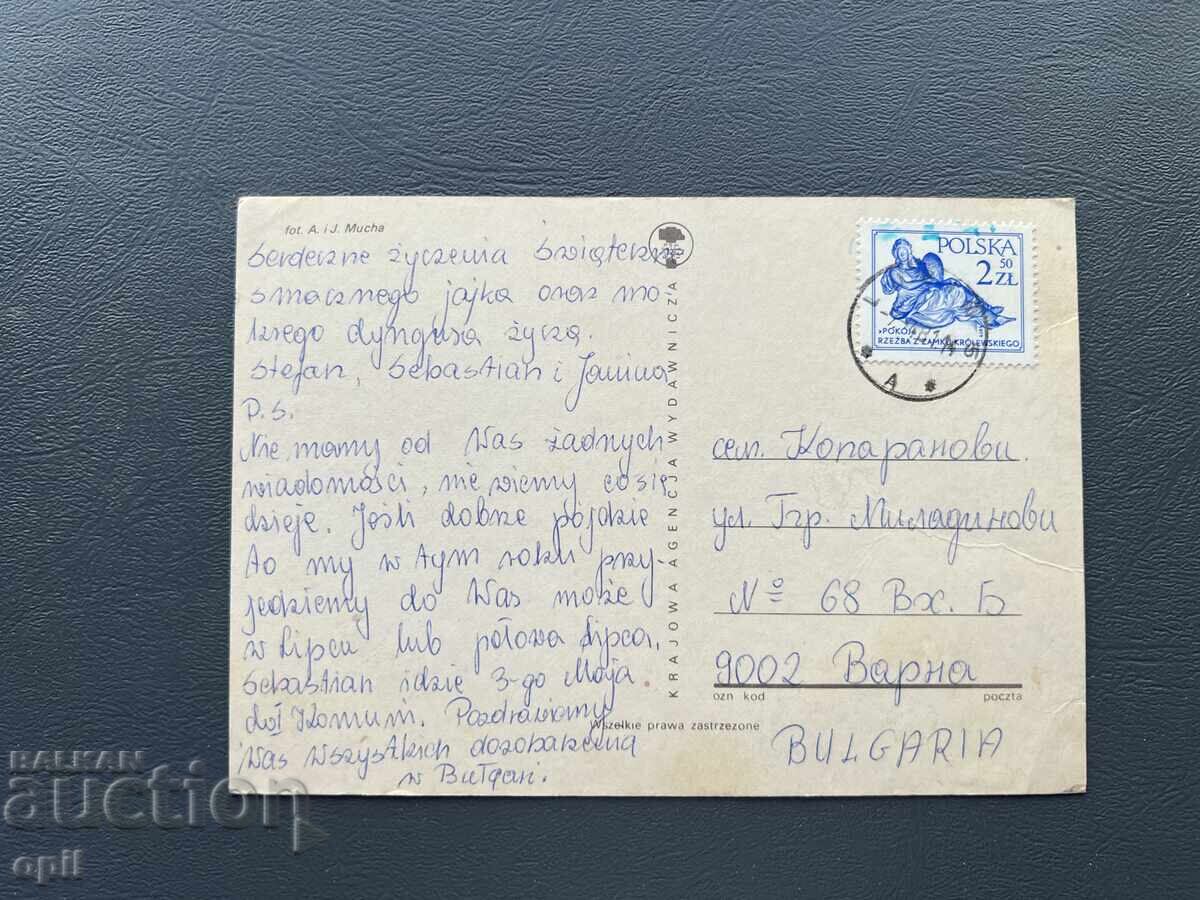 fot. A. i J. Mucha
Serdeczne życzenia Świąteczne
smacznego jajka oraz mo
krego dyngusa życzą.
Stefan, Sebastian i Janina
P.S.
Nie mamy od Was żadnych
wiadomości, nie wiemy co się
dzieje. Jeśli dobrze pójdzie
to my w tym roku przy
jedziemy do Was może
w Lipcu lub połowa Lipca.
Sebastian idzie 3-go Maja
do I Komuni. Pozdrawiamy
Was Wszystkich dozobaczenia
w Bułgari.
KRAJOWA AGENCJA WYDAWNICZA
POLSKA
2 50 ZŁ
»POKÓJ«
RZEŹBA Z ZAMKU KRÓLEWSKIEGO
A
сем. Копаранови.
ул. Гр. Миладинови
№ 68 Вх. Б
9002 Варна
ozn kod poczta
Wszelkie prawa zastrzeżone
BULGARIA
BALKAN
auction
opil